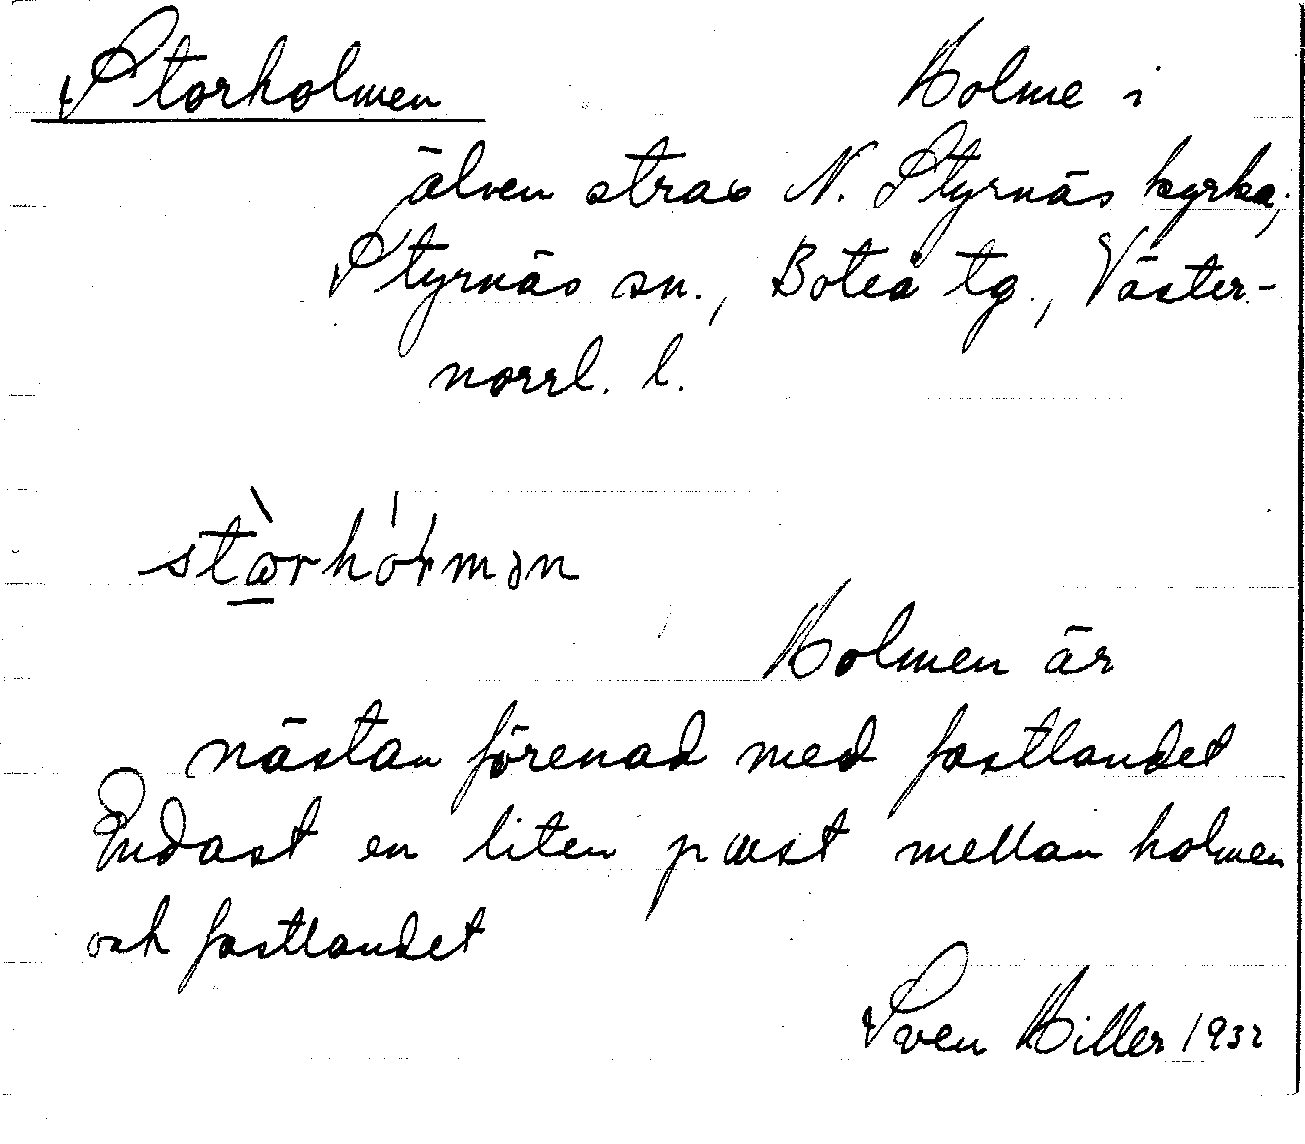 Storholmen Holme i
älven strax N. Styrnäs kyrka,
Styrnäs sn., Boteå tg., Väster-
norrl. l.
Holmen är
nästan förenad med fastlandet
Endast en liten pust mellan holmen
och fastlandet
Sven Hiller 1932